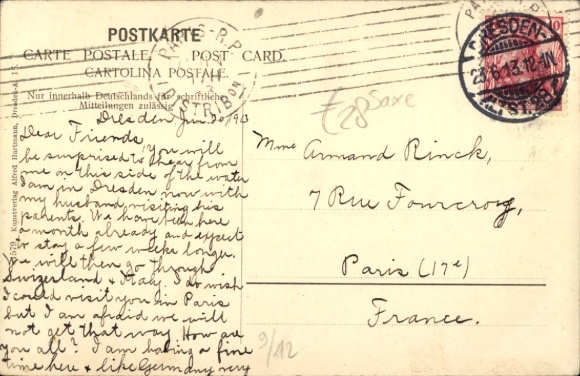 POSTKARTE
CARTE POSTALE. POST CARD.
CARTOLINA POSTALE.
Nur innerhalb Deutschlands für schriftliche
Mitteilungen zulässig
Dresden Jun. 20/1913
Dear Friends, You will
be surprised to hear from
me on this side of the water
I am in Dresden now with
my husband visiting his
parents. We have been here
a month already and expect
to stay a few weeks longer.
We will then go through
Swizerland & Italy. I do wish
I could visit you in Paris
but I am afraid we will
not get that way. How are
you all? I am having a fine
time here & like Germany very
Kunstverlag Alfred Hartmann, Dresden-A.
Saxe
Mme Armand Rinck,
7 Rue Fourcroy,
Paris (17e)
France.
9/12
DRESDEN-
6.13.12-1N
PARIS R.P.
DISTRIBon
10